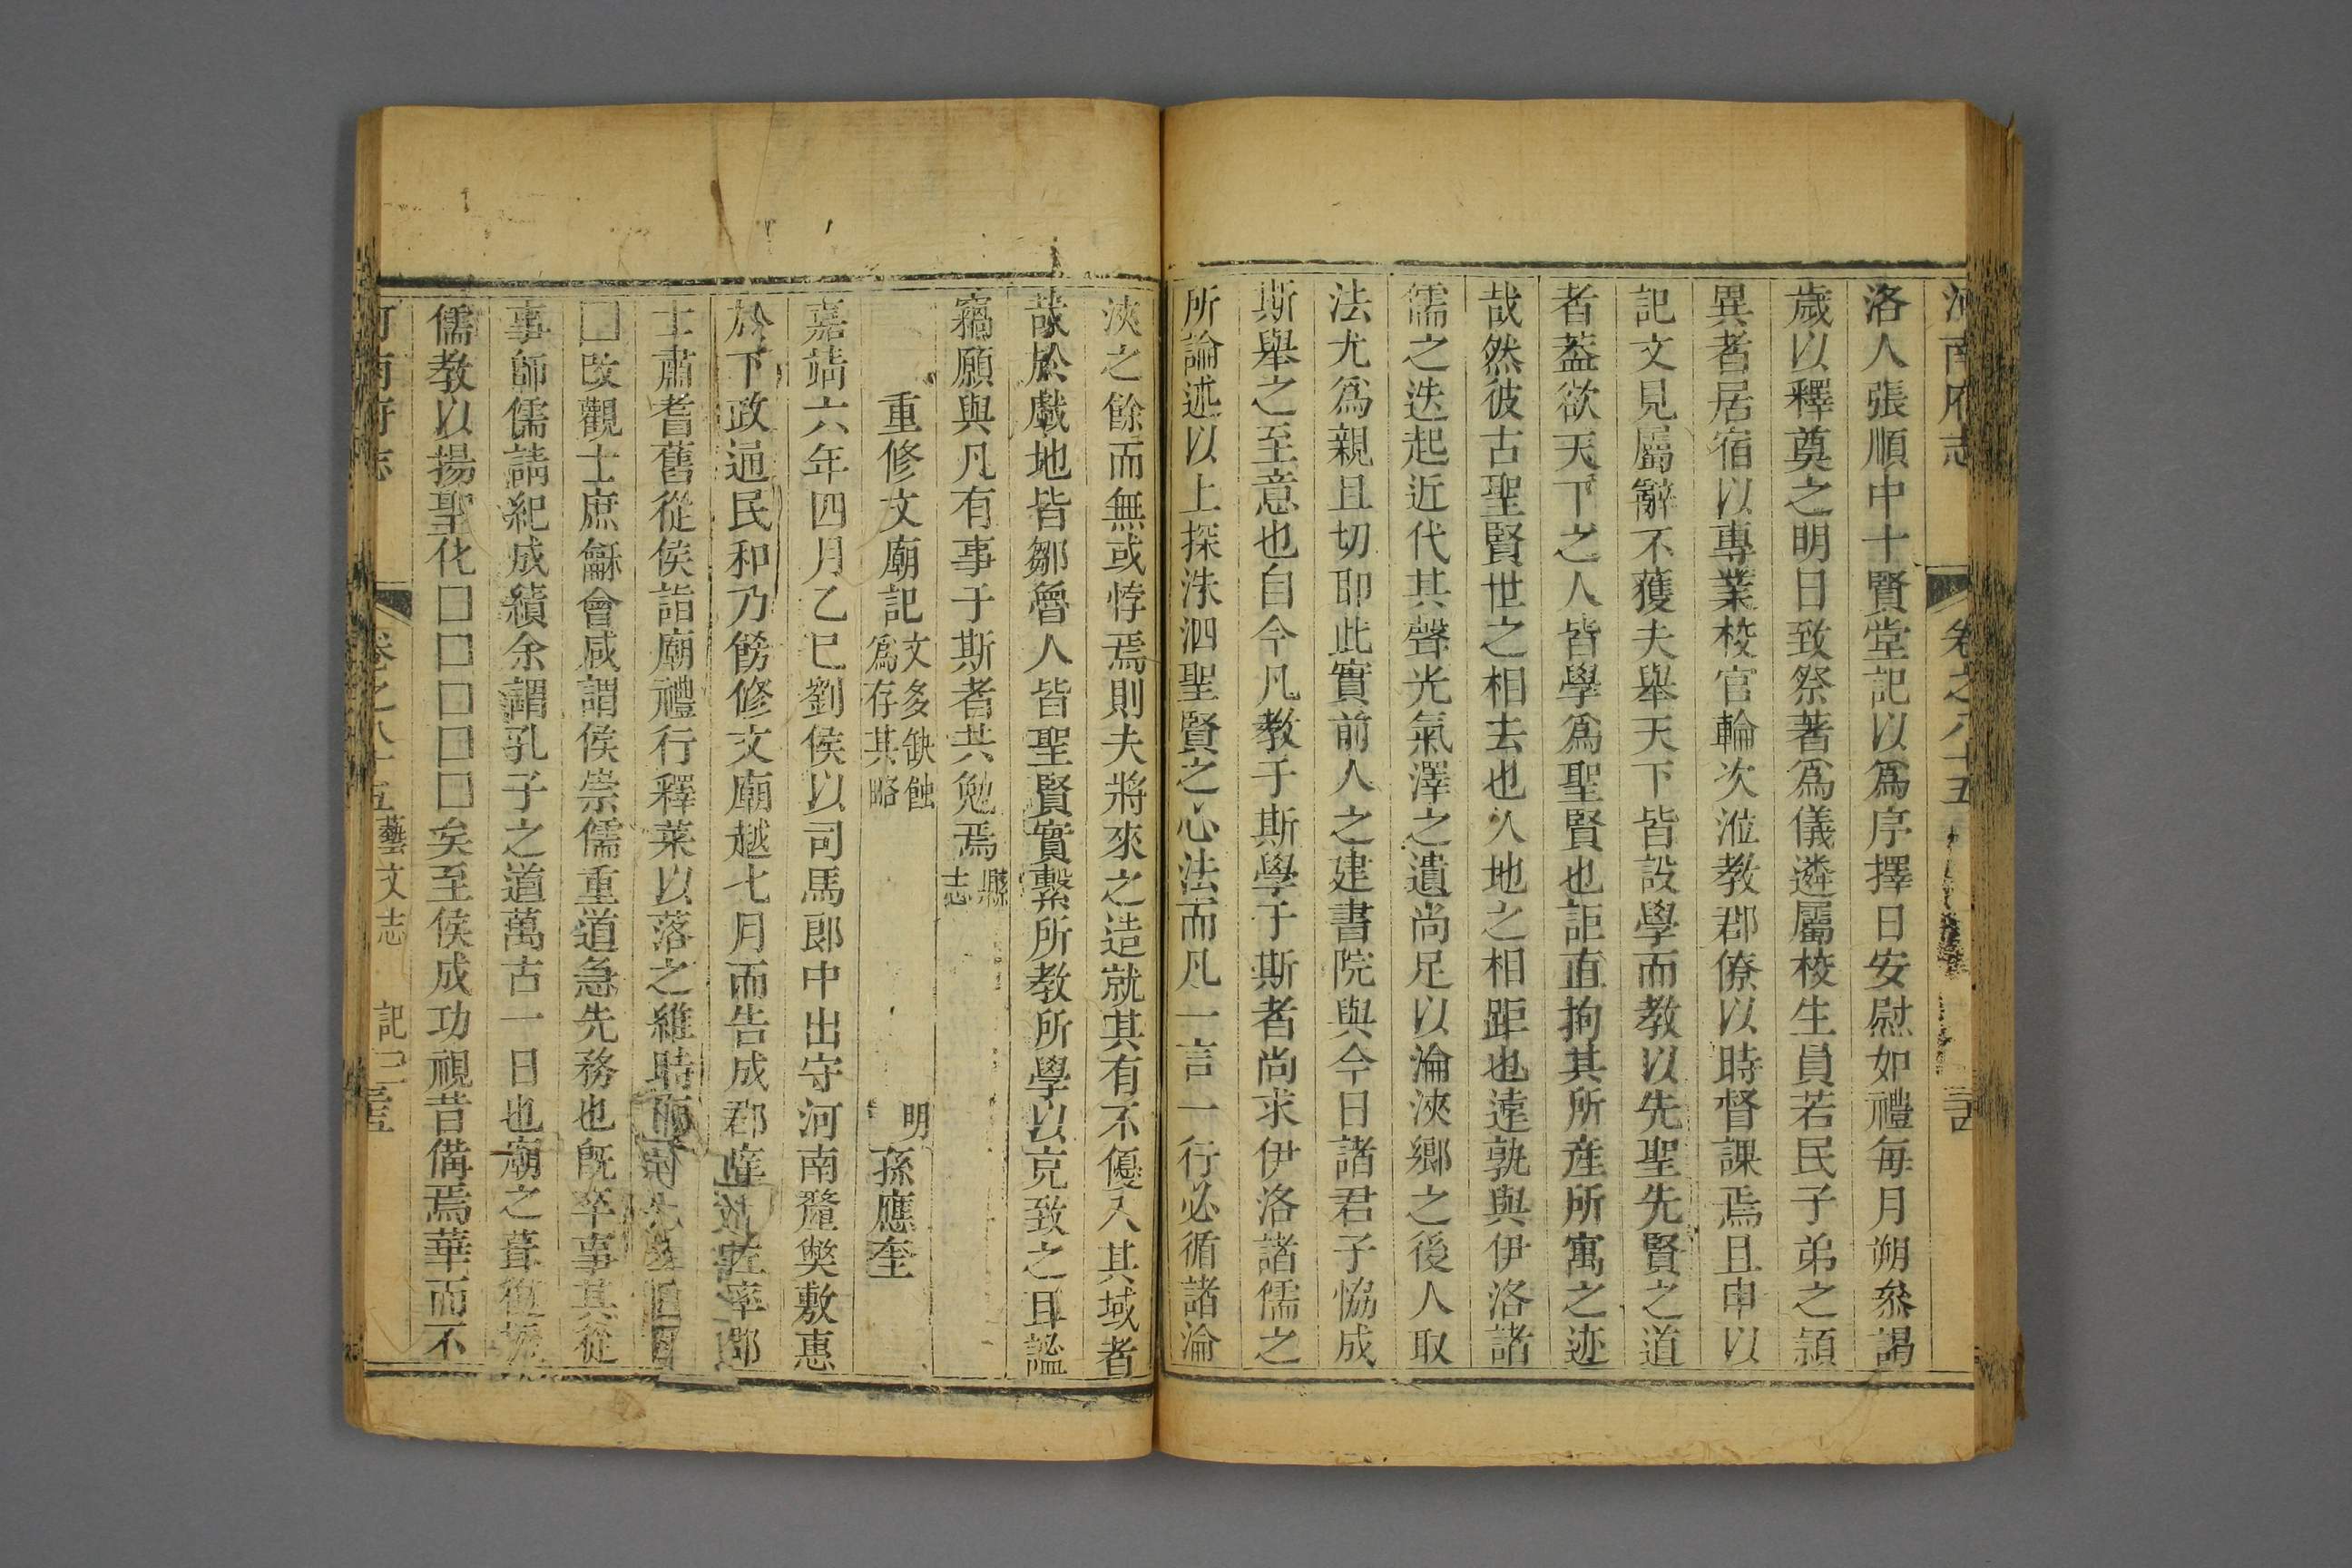 河南府志 卷之八十五
洛人張順中十賢堂記以爲序擇日安慰如禮每月朔叅謁
歲以釋奠之明日致祭著爲儀遴屬校生員若民子弟之頴
異者居宿以專業校官輪次涖教郡僚以時督課焉且申以
記文見屬辭不獲夫舉天下皆設學而教以先聖先賢之道
者葢欲天下之人皆學爲聖賢也詎直拘其所產所寓之迹
哉然彼古聖賢世之相去也人地之相距也逺孰與伊洛諸
儒之迭起近代其聲光氣澤之遺尚足以淪浹鄉之後人取
法尤爲親且切耶此實前人之建書院與今日諸君子恊成
斯舉之至意也自今凡教于斯學于斯者尚求伊洛諸儒之
所論述以上探洙泗聖賢之心法而凡一言一行必循諸淪
浹之餘而無或悖焉則夫將來之造就其有不優入其域者
哉於戲地皆鄒魯人皆聖賢實繫所教所學以克致之耳謐
竊願與凡有事于斯者共勉焉縣志
重修文廟記文多缺蝕爲存其略 明孫應奎
嘉靖六年四月乙巳劉侯以司馬郎中出守河南釐獘敷惠
於下政通民和乃飭修文廟越七月而告成郡庠率郡
士肅耆舊從侯詣廟禮行釋菜以落之維時
□改觀士庶龢會咸謂侯崇儒重道急先務也旣卒事其從
事師儒請紀成績余謂孔子之道萬古一日也廟之葺
儒教以揚聖化□□□□□矣至侯成功視昔備焉華而不
河南府志 卷之八十五 藝文志 記